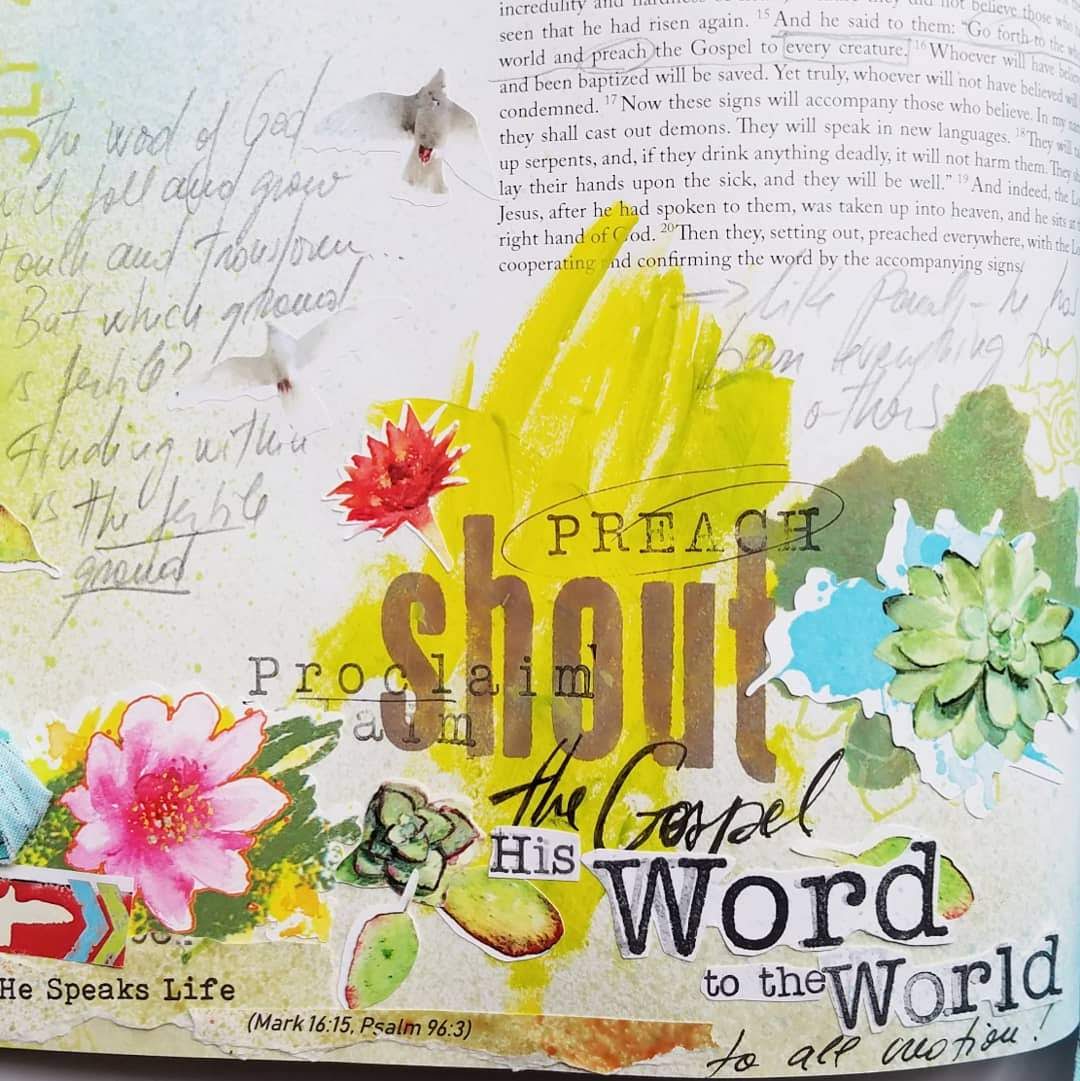 seen that he had risen again. 15 And he said to them: "Go forth to the
world and preach the Gospel to every creature. 16 Whoever will have
and been baptized will be saved. Yet truly, whoever will not have believed will
condemned. 17 Now these signs will accompany those who believe. In my
they shall cast out demons. They will speak in new languages. 18 They will
up serpents, and, if they drink anything deadly, it will not harm them. They
lay their hands upon the sick, and they will be well." 19 And indeed, the
Jesus, after he had spoken to them, was taken up into heaven, and he sits at
right hand of God. 20 Then they, setting out, preached everywhere, with the
cooperating and confirming the word by the accompanying signs.
The word of God
will fall and grow
touch and transform...
But which ground
is fertile?
Finding within
is the fertile
ground
→ like Paul - he
been everything
others
PREACH
shout
Proclaim
aim
the Gospel
His Word
to the World
to all motion!
He Speaks Life
(Mark 16:15, Psalm 96:3)